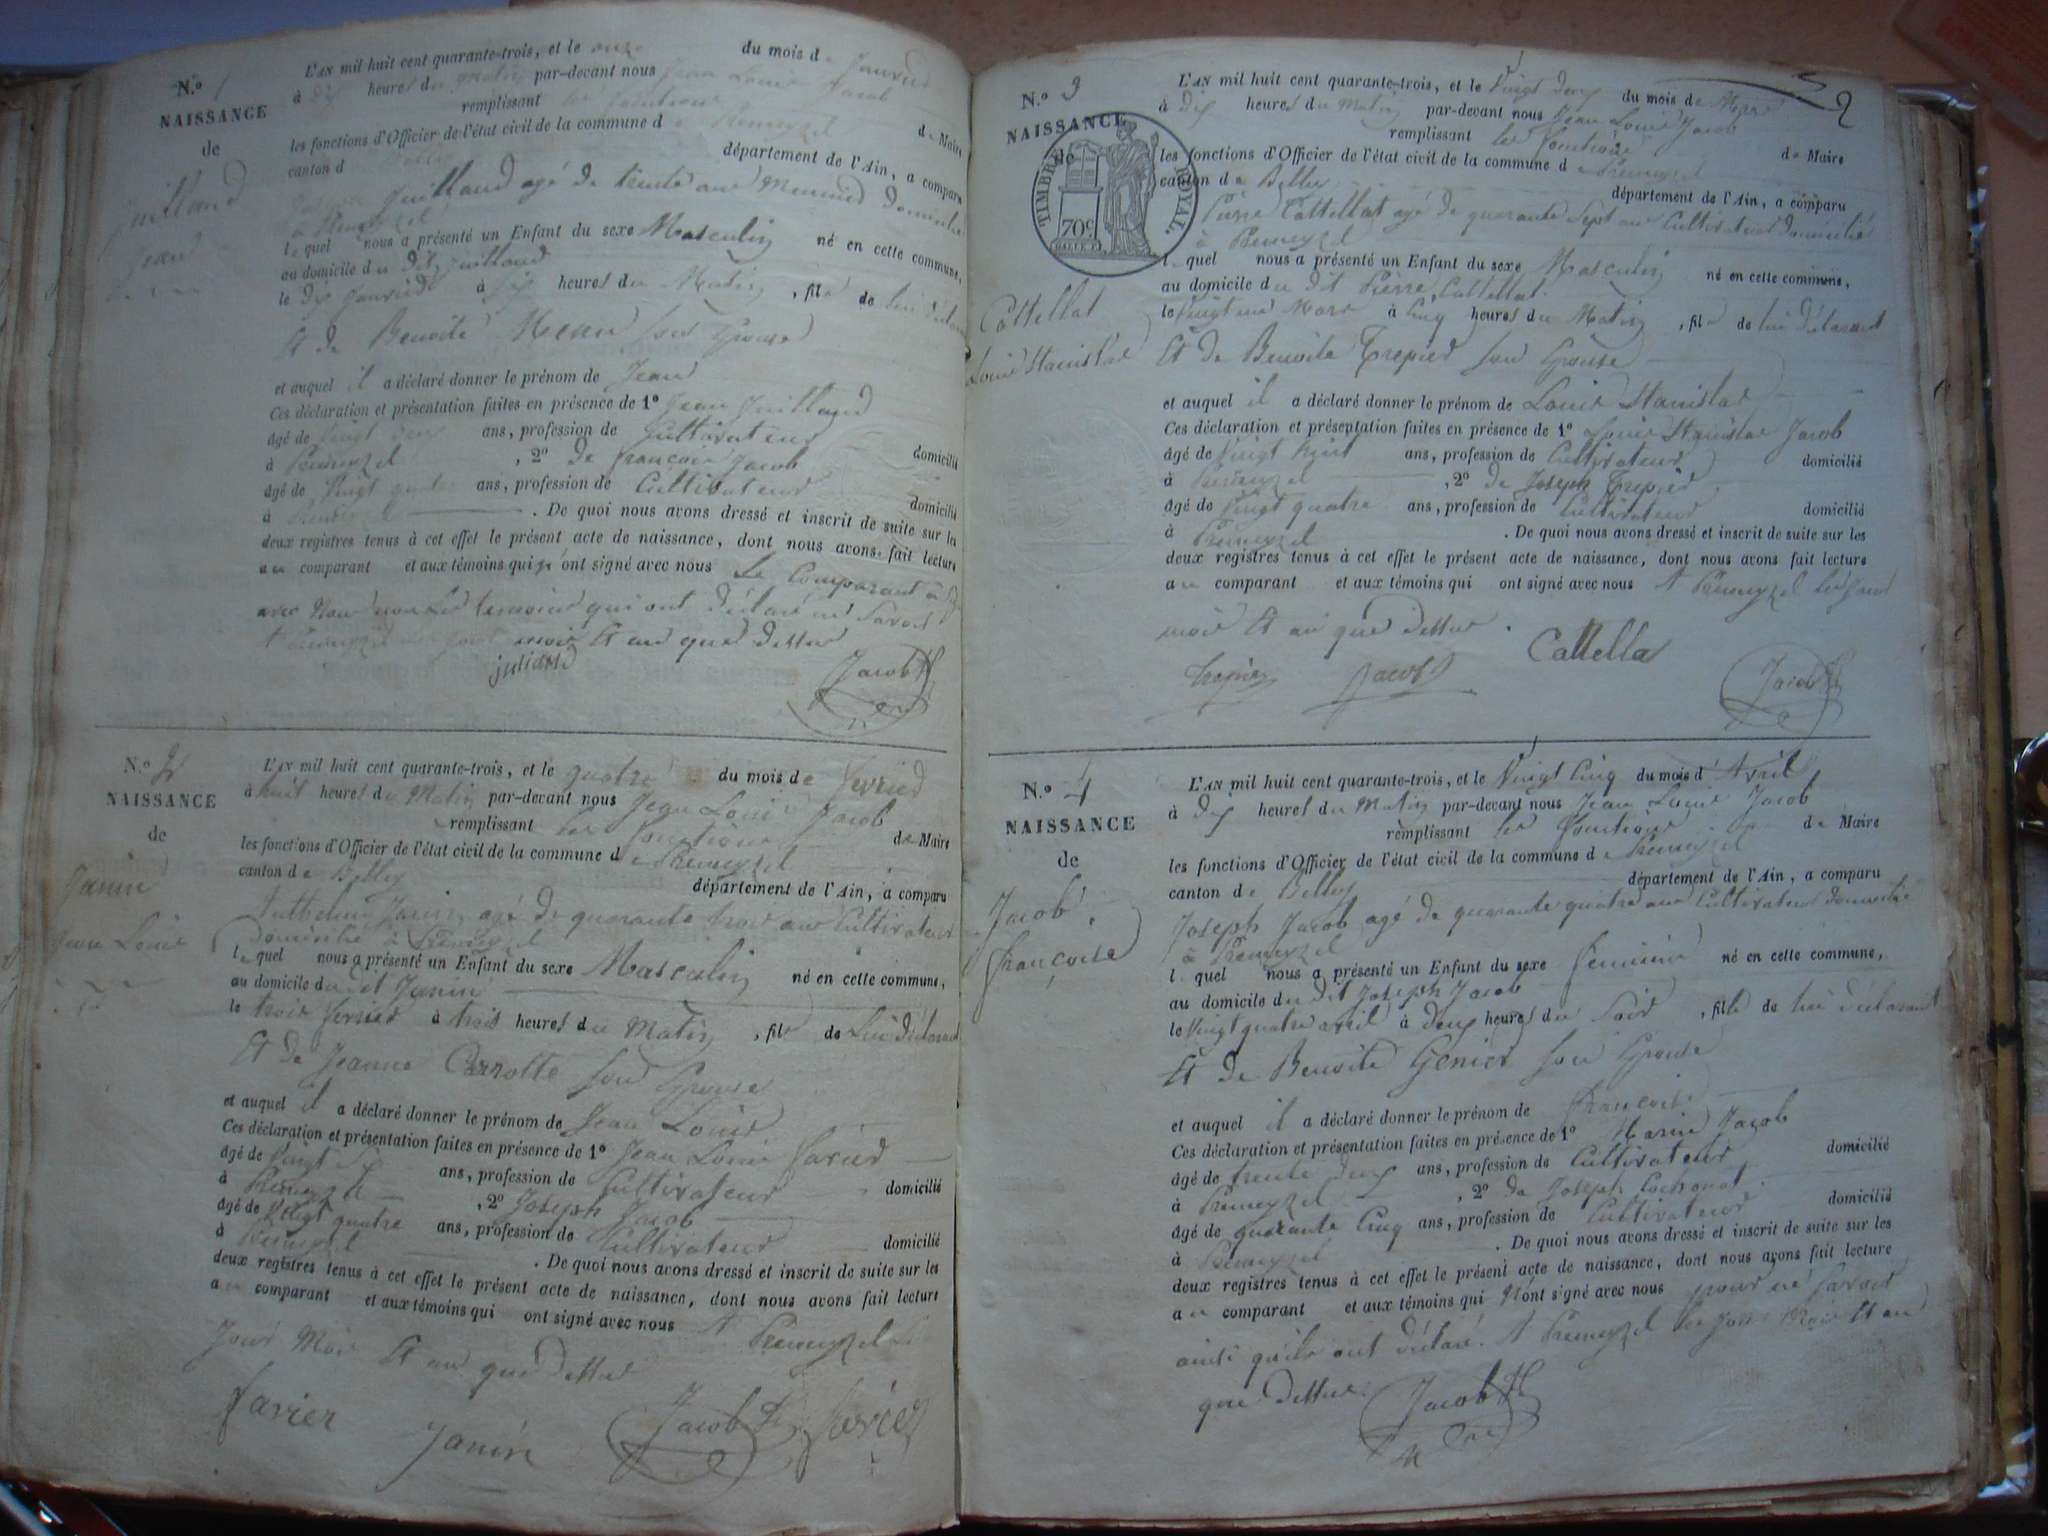 N.º 1
NAISSANCE
de
Juilland
Jean
L'AN mil huit cent quarante-trois, et le onze du mois de Janvier
à dix heures du matin par-devant nous Jean Louis Jacob
remplissant les fonctions de Maire
les fonctions d'Officier de l'état civil de la commune de Premeyzel
canton d département de l'Ain, a comparu
Juilland agé de trente ans Meunier domicilié
à Premeyzel
lequel nous a présenté un Enfant du sexe Masculin né en cette commune,
au domicile du dit Juilland
le dix Janvier à six heures du Matin, fils de lui déclarant
Et de Benoite son Epouse
et auquel il a déclaré donner le prénom de Jean
Ces déclaration et présentation faites en présence de 1º Jean Juilland
âgé de vingt ans, profession de Cultivateur domicilié
à Premeyzel, 2º de françois Jacob
âgé de vingt quatre ans, profession de Cultivateur domicilié
à Premeyzel. De quoi nous avons dressé et inscrit de suite sur les
deux registres tenus à cet effet le présent acte de naissance, dont nous avons fait lecture
au comparant et aux témoins qui ont signé avec nous Le Comparant à
avec Nous non Les temoins qui ont déclaré ne Savoir
A Premeyzel les jour mois Et an que dessus
juiland
Jacob
N.º 2
NAISSANCE
de
Janin
Jean Louis
L'AN mil huit cent quarante-trois, et le quatre du mois de fevrier
à huit heures du Matin par-devant nous Jean Louis Jacob
remplissant les fonctions de Maire
les fonctions d'Officier de l'état civil de la commune de Premeyzel
canton de Belley département de l'Ain, a comparu
Anthelme Janin agé de quarante trois ans Cultivateur
domicilié à Premeyzel
lequel nous a présenté un Enfant du sexe Masculin né en cette commune,
au domicile du dit Janin
le trois fevrier à trois heures du Matin, fils de Lui déclarant
Et de Jeanne Carrotte son Epouse
et auquel il a déclaré donner le prénom de Jean Louis
Ces déclaration et présentation faites en présence de 1º Jean Louis Savier
âgé de vingt ans, profession de Cultivateur domicilié
à Premeyzel, 2º Joseph Jacob
âgé de vingt quatre ans, profession de Cultivateur domicilié
à Premeyzel. De quoi nous avons dressé et inscrit de suite sur les
deux registres tenus à cet effet le présent acte de naissance, dont nous avons fait lecture
au comparant et aux témoins qui ont signé avec nous A Premeyzel les
Jour Mois Et an que dessus
Savier
Janin
Jacob
N.º 3
NAISSANCE
de
TIMBRE ROYAL.
70 c
Cattellat
Louis Stanislas
2
L'AN mil huit cent quarante-trois, et le vingt deux du mois de Mars
à dix heures du Matin par-devant nous Jean Louis Jacob
remplissant les fonctions de Maire
les fonctions d'Officier de l'état civil de la commune de Premeyzel
canton de Belley département de l'Ain, a comparu
Pierre Cattellat agé de quarante Sept ans Cultivateur domicilié
à Premeyzel
lequel nous a présenté un Enfant du sexe Masculin né en cette commune,
au domicile du dit Pierre Cattellat
le vingt un Mars à cinq heures du Matin, fils de lui déclarant
Et de Benoite Trepier son Epouse
et auquel il a déclaré donner le prénom de Louis Stanislas
Ces déclaration et présentation faites en présence de 1º Louis Stanislas Jacob
âgé de vingt huit ans, profession de Cultivateur domicilié
à Premeyzel, 2º de Joseph Trepier
âgé de vingt quatre ans, profession de Cultivateur domicilié
à Premeyzel. De quoi nous avons dressé et inscrit de suite sur les
deux registres tenus à cet effet le présent acte de naissance, dont nous avons fait lecture
au comparant et aux témoins qui ont signé avec nous A Premeyzel les Jour
mois Et an que dessus.
Cattella
trepier
Jacob
Jacob
N.º 4
NAISSANCE
de
Jacob
françoise
L'AN mil huit cent quarante-trois, et le Vingt Cinq du mois d'Avril
à dix heures du Matin par-devant nous Jean Louis Jacob
remplissant les fonctions de Maire
les fonctions d'Officier de l'état civil de la commune de Premeyzel
canton de Belley département de l'Ain, a comparu
Joseph Jacob agé de quarante quatre ans Cultivateur domicilié
à Premeyzel
lequel nous a présenté un Enfant du sexe feminin né en cette commune,
au domicile du dit Joseph Jacob
le Vingt quatre avril à deux heures du Soir, fille de lui déclarant
Et de Benoite Genier son Epouse
et auquel il a déclaré donner le prénom de françoise
Ces déclaration et présentation faites en présence de 1º Marin Jacob
âgé de trente deux ans, profession de Cultivateur domicilié
à Premeyzel, 2º de Joseph Cochonat
âgé de quarante Cinq ans, profession de Cultivateur domicilié
à Premeyzel. De quoi nous avons dressé et inscrit de suite sur les
deux registres tenus à cet effet le présent acte de naissance, dont nous avons fait lecture
au comparant et aux témoins qui n'ont signé avec nous pour ne savoir
ainsi qu'ils ont déclaré. A Premeyzel les Jour Mois Et an
que dessus.
Jacob